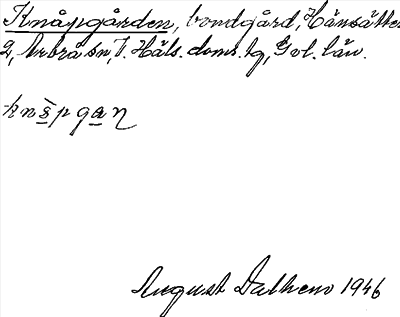 Knåpgården, bondgård, Hänsätter
2, Arbrå sn, V. Häls. doms. hg, Gvl. län.
knåpgaŋ
August Dalhem 1946